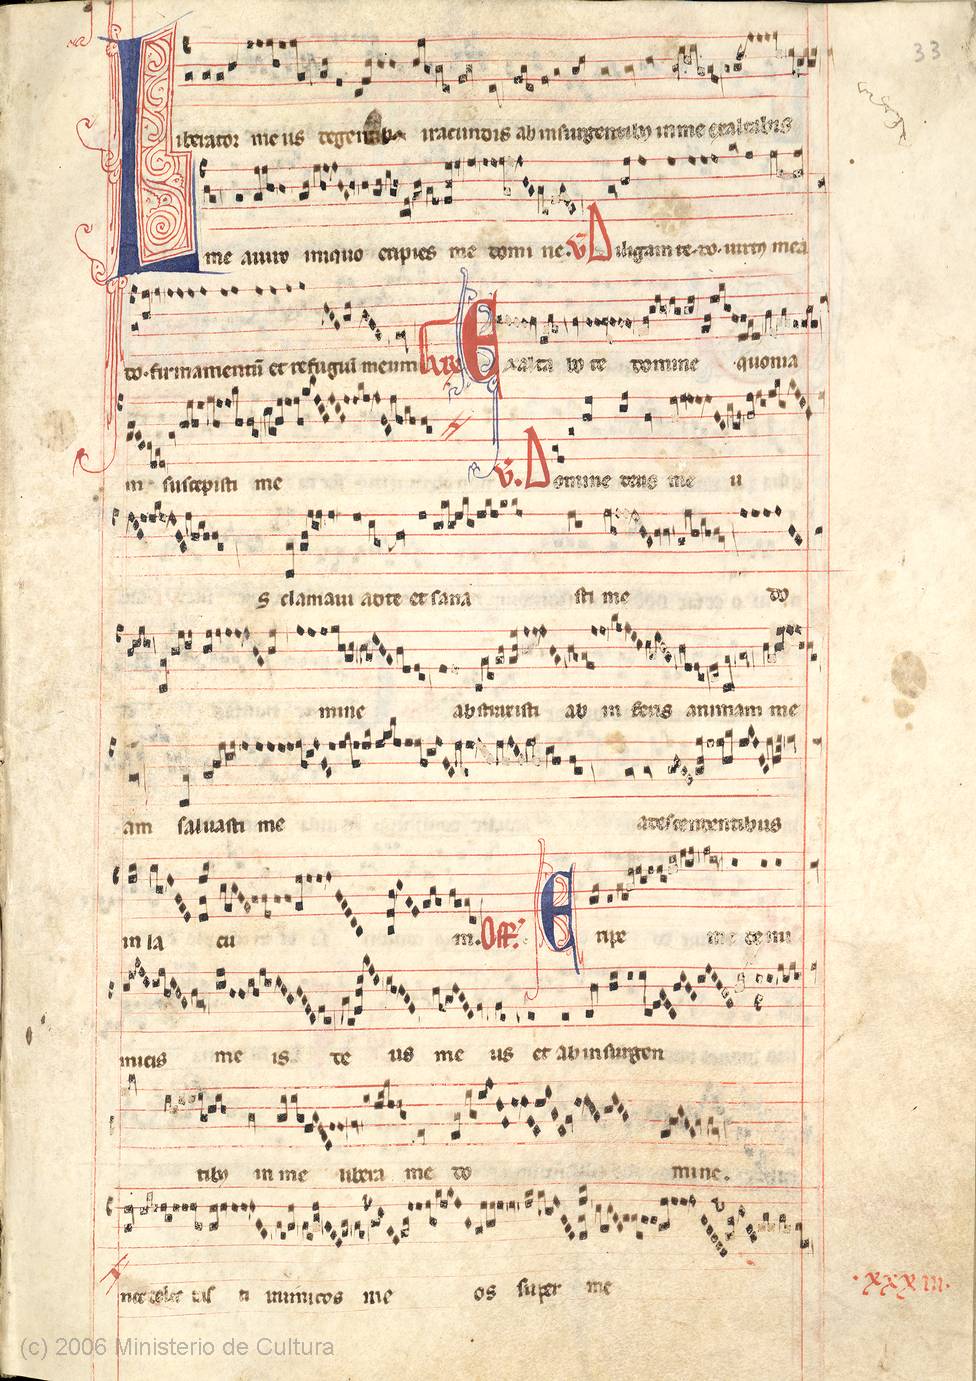 33
Liberator meus de gentib iracundis ab insurgentib in me exaltabis
me a viro iniquo eripies me domi ne. v. Diligam te. do. virt9 mea
do. firmamentū et refugiū meum Are Exalta bo te domine quonia
m suscepisti me v. Domine deus me u
s clamavi ad te et sana sti me do
mine abstraxisti ab in feris animam me
am salvasti me a descendentibus
in la cu m. Off. Eripe me de ini
micis me is de us me us et ab insurgen
tib9 in me libera me do mine.
ti inimicos me os super me
.xxxiii.
(c) 2006 Ministerio de Cultura